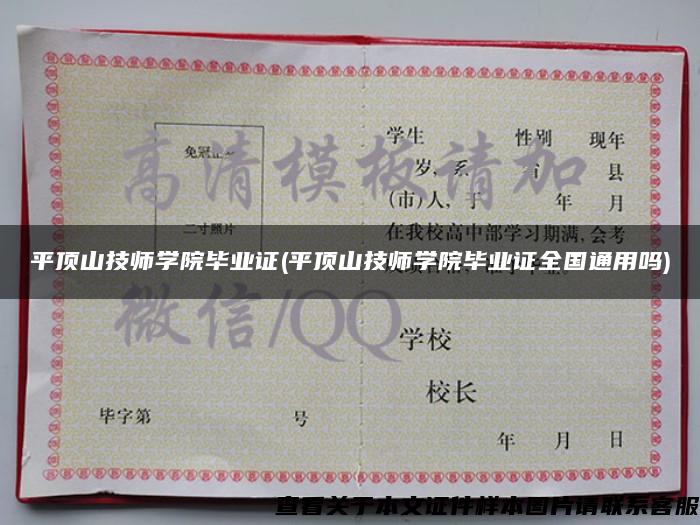 学生 性别 现年
岁, 系 省 县
(市)人, 于 年 月
在我校高中部学习期满, 会考
免冠正
二寸照片
高清模板请加
微信/QQ
平顶山技师学院毕业证(平顶山技师学院毕业证全国通用吗)
学校
校长
毕字第 号
年 月 日
查看关于本文证件样本图片请联系客服